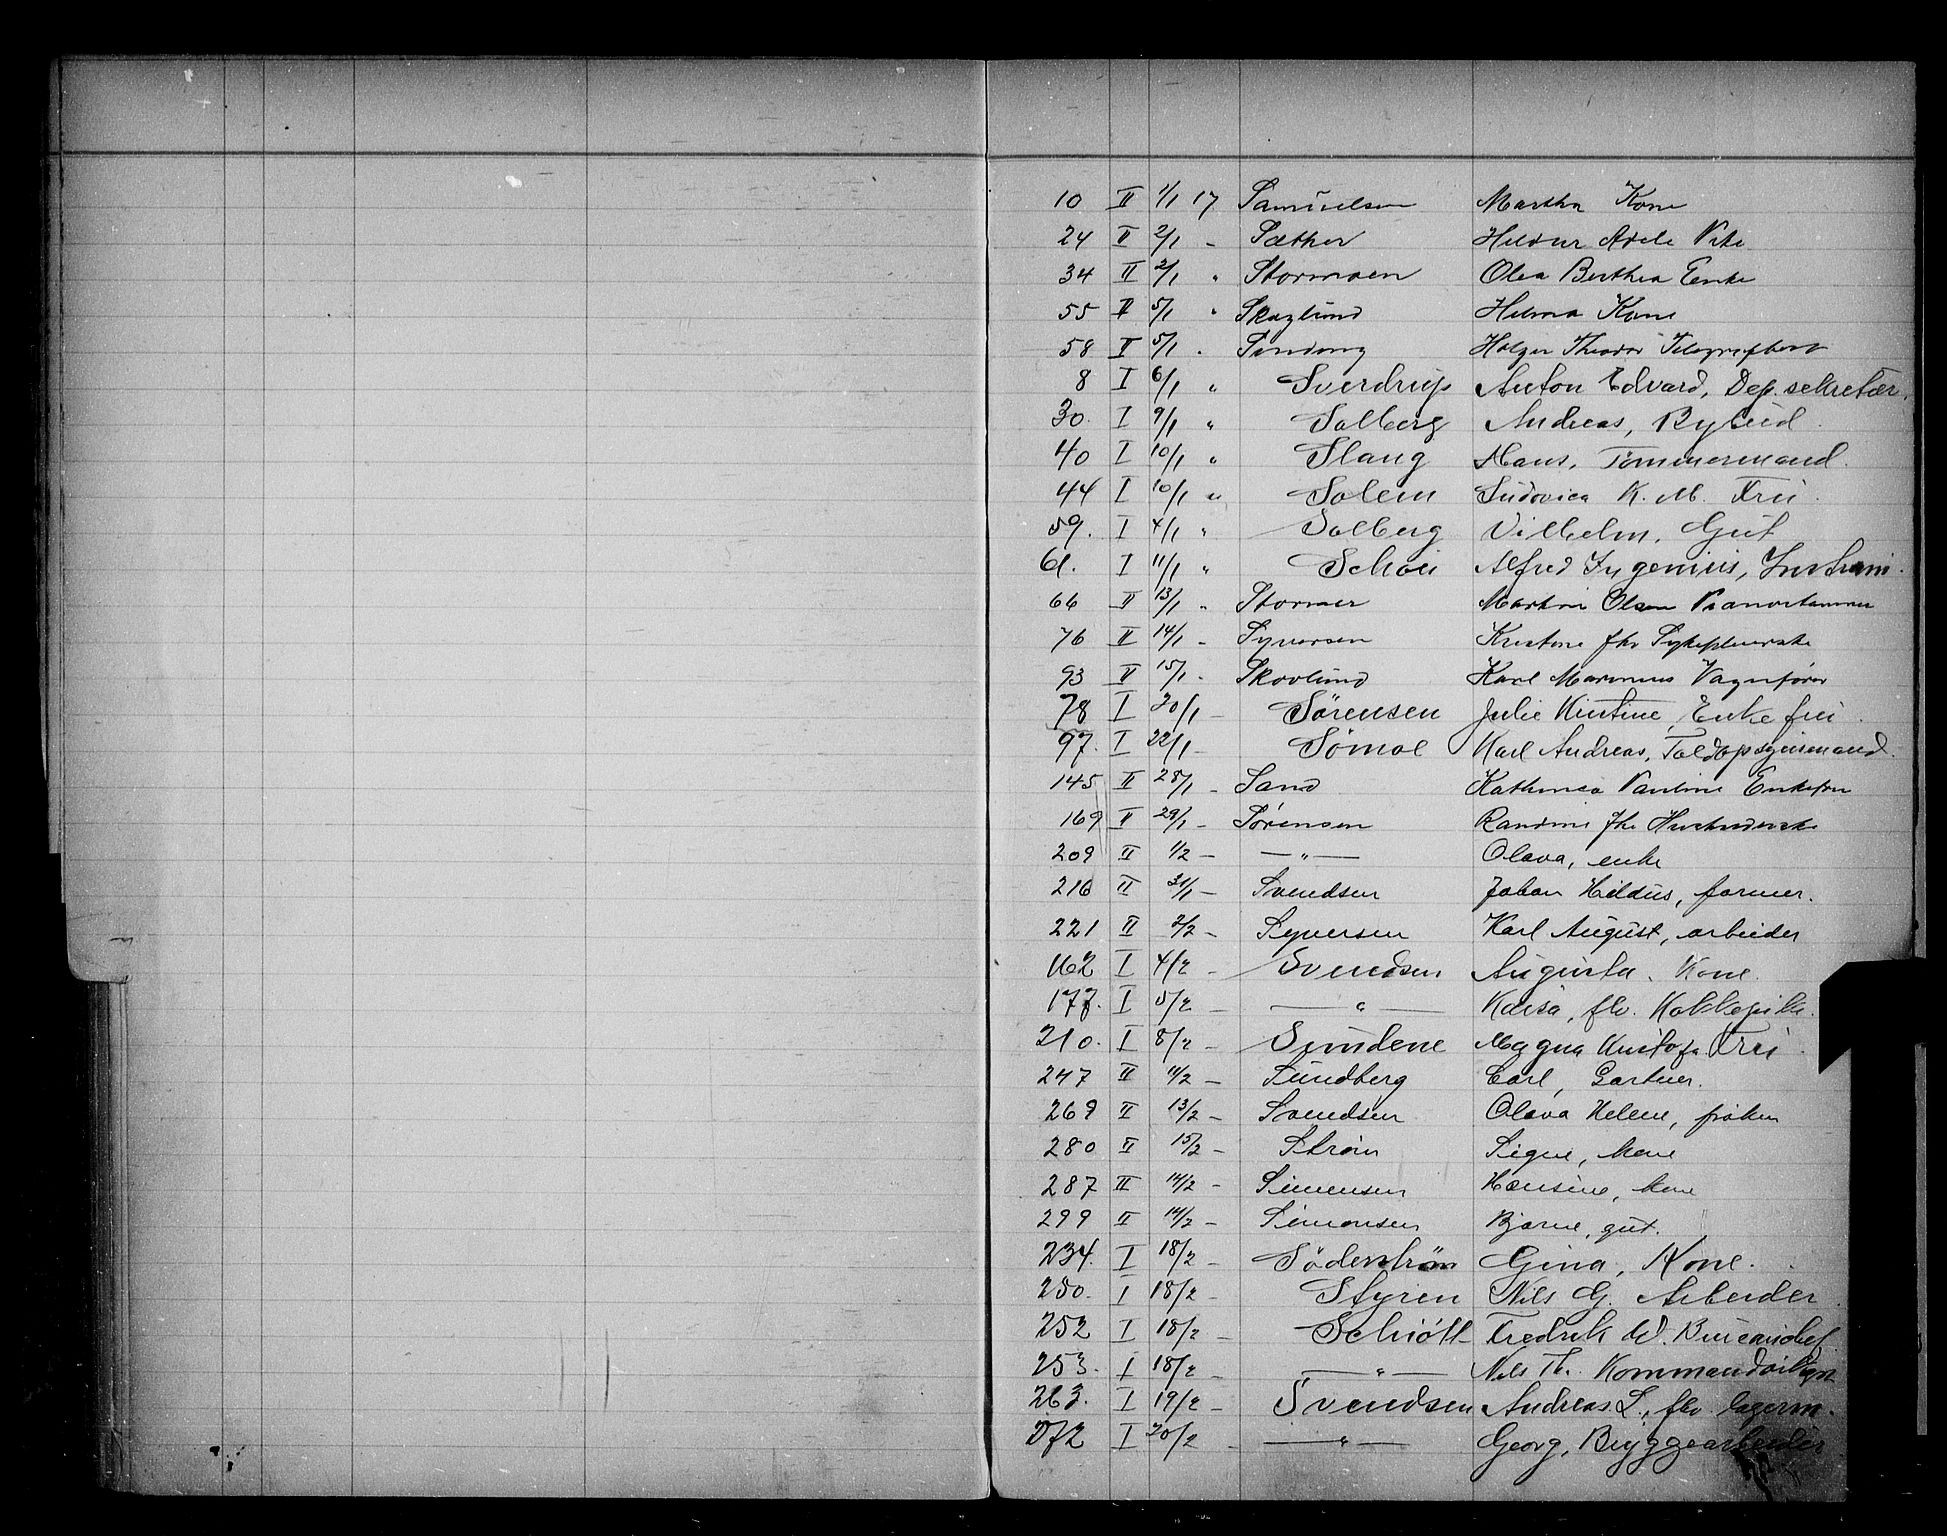 10 II 1/1 17 Samuelsen Martha Kone
24 II 2/1 - Sæther Hildur Adele Pike
34 II 2/1 " Stormoen Olea Berthea Enke
55 II 5/1 " Skoglund Helma Kone
58 II 5/1 " Holger Theodor Telegrafbest
8 I 6/1 " Sverdrup Anton Edvard, Dep. sekretær.
30. I 9/1 " Solberg Andreas, Bybud.
40 I 10/1 " Slang Hans, Tømmermand.
44 I 10/1 " Solem Ludovica K. M. Fru.
59. I 4/1 " Solberg Vilhelm, Gut
61. I 11/1 " Schou Alfred Ingenius,
66 II 13/1 " Stormer Martin Olsen
76 II 14/1 - Syversen Kristine fhv Sykepleierske
93 II 15/1 - Skovlund Karl Marinius Vognfører
78 I 20/1 - Sørensen Julie Kristine, Enkefru.
97. I 22/1 - Sømoe Karl Andreas, Toldopsynsmand.
145 II 28/1 - Sand Kathinca Pauline Enkefru
169 II 29/1 - Sørensen Randine fhv
209 II 1/2 - — " — Olava, enke
216 II 31/1 - Svendsen Johan Hildus, former.
221 II 2/2 - Syversen Karl August, arbeider
162 I 4/2 - Svendsen Augusta. Kone.
177. I 5/2 - — " — Kaisa, fhv. Kokkepike.
210. I 8/2 - Sundene Magna Kristofa Fru.
247 II 11/2 - Sundberg Carl, Gartner.
269 II 13/2 - Svendsen Olava Helene, frøken
280 II 15/2 - Strøm Signe, kone
287 II 14/2 - Simensen Hansine, kone
299 II 14/2 - Simonsen Bjarne, gut.
234. I 18/2 - Söderström Gina, Kone.
250. I 18/2 - Styren Nils G. Arbeider.
252 I 18/2 - Schiøtt Fredrik W. Bureauchef.
253. I 18/2 - — " — Nils Th.
263. I 19/2 - Svendsen Andreas L., fhv. lagerm.
272 I 20/2 - — " — Georg, Bryggearbeider